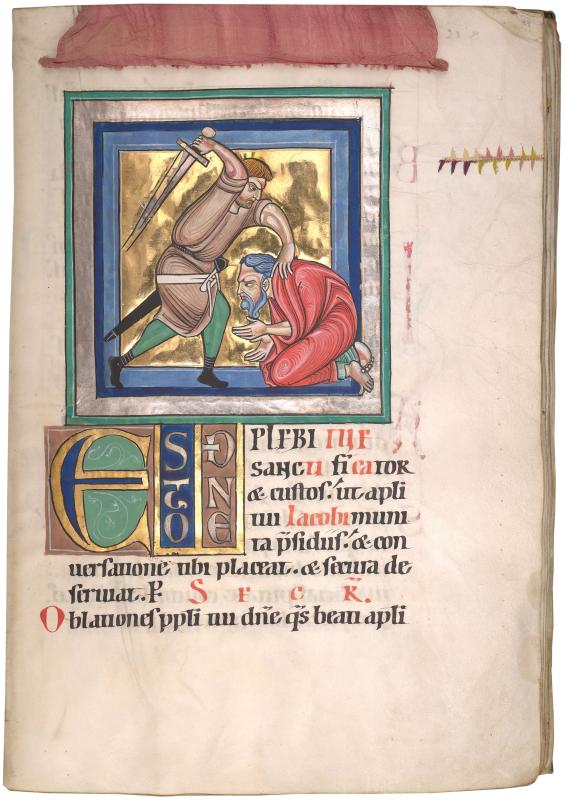 ESTO DN̄E PLEBI TUE
sanctificator
& custos. ut apli
tui Iacobi muni
ta p̄sidiis. & con
uersatione tibi placeat. & secura de
seruiat. P S E C R̄.
Oblationes ppli tui dn̄e q̄s beati apli